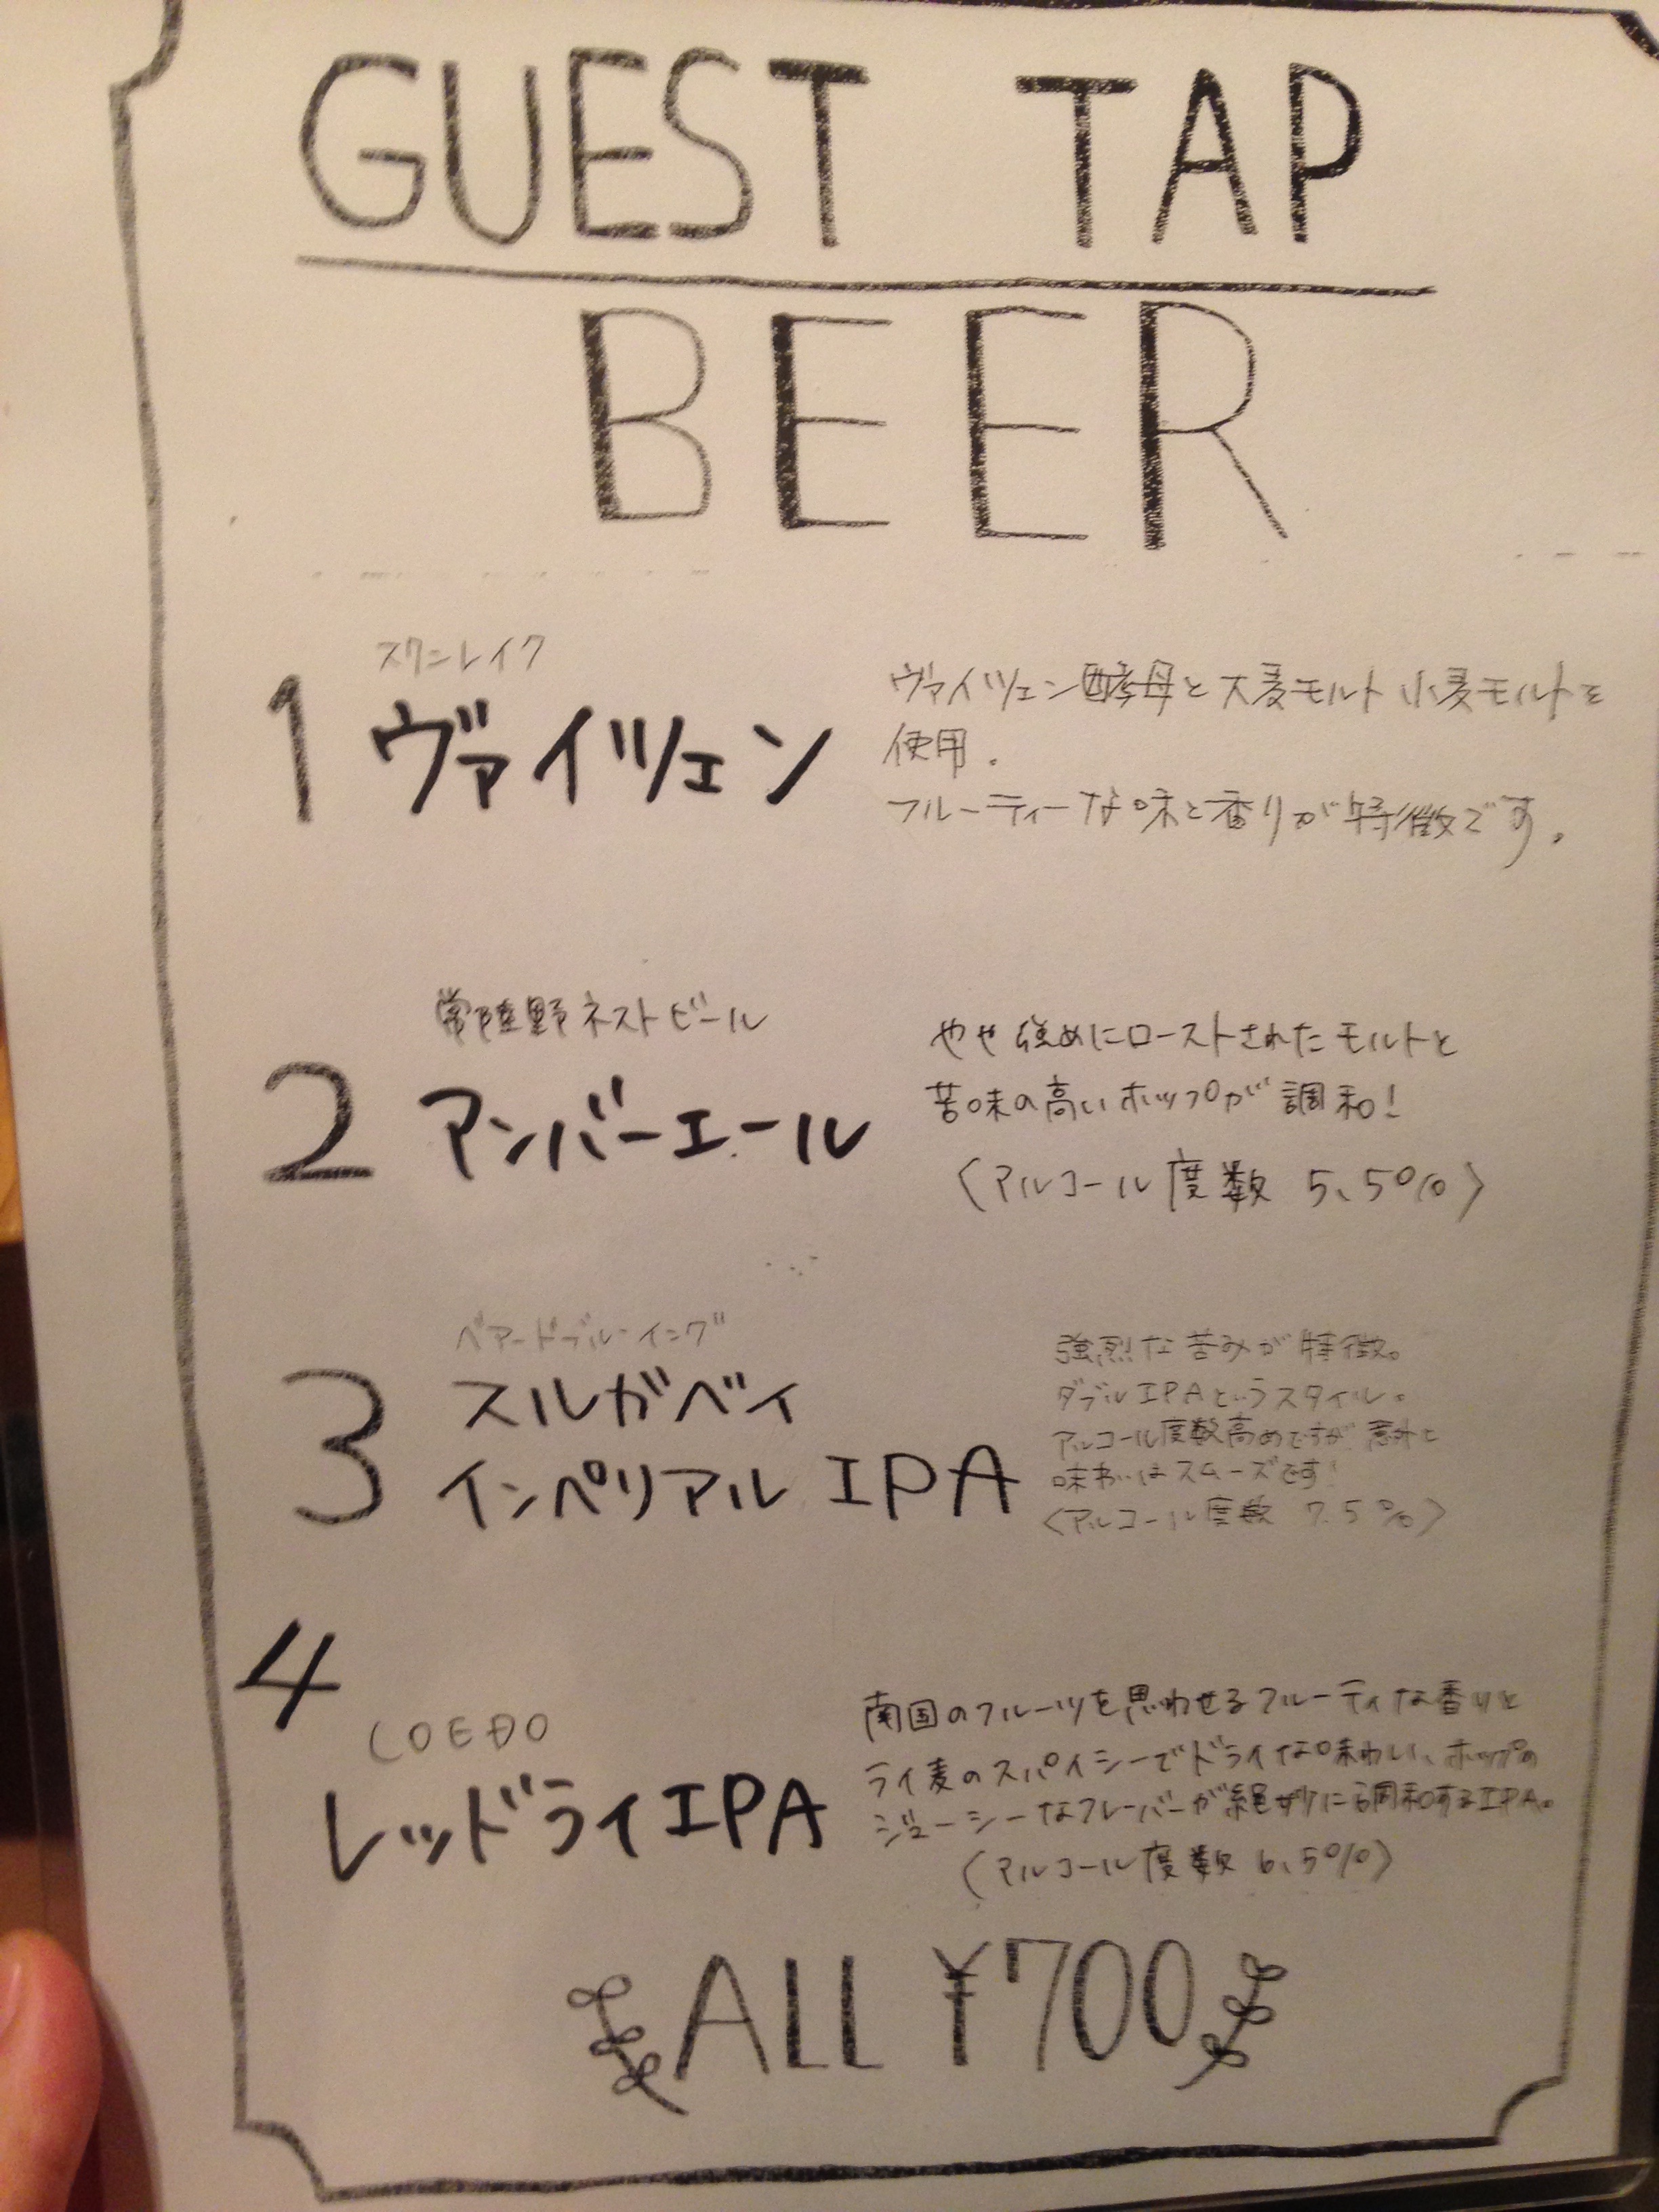 GUEST TAP
BEER
スワンレイク
1 ヴァイツェン
ヴァイツェン酵母と大麦モルト小麦モルトを
使用.
フルーティーな味と香りが特徴です。
常陸野ネストビール
2 アンバーエール
やや強めにローストされたモルトと
苦味の高いホップが調和!
〈アルコール度数 5、5%〉
ベアードブルーイング
3 スルガベイ
インペリアル IPA
強烈な苦みが特徴。
ダブルIPAというスタイル。
アルコール度数高めですが意外と
味わいはスムーズです!
〈アルコール度数 7.5%〉
4
COEDO
レッドライIPA
南国のフルーツを思わせるフルーティな香りと
ライ麦のスパイシーでドライな味わい、ホップの
ジューシーなフレーバーが絶妙に調和するIPA。
(アルコール度数 6、5%)
ALL ¥700